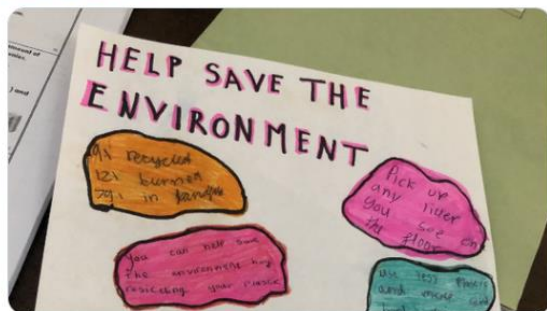 HELP SAVE THE
ENVIRONMENT
9% recycled
12% burned
79% in
Pick up
any litter
you see on
the floor
You can help save
the environment by
your plastic
use less plastic
and more
amount of
) and